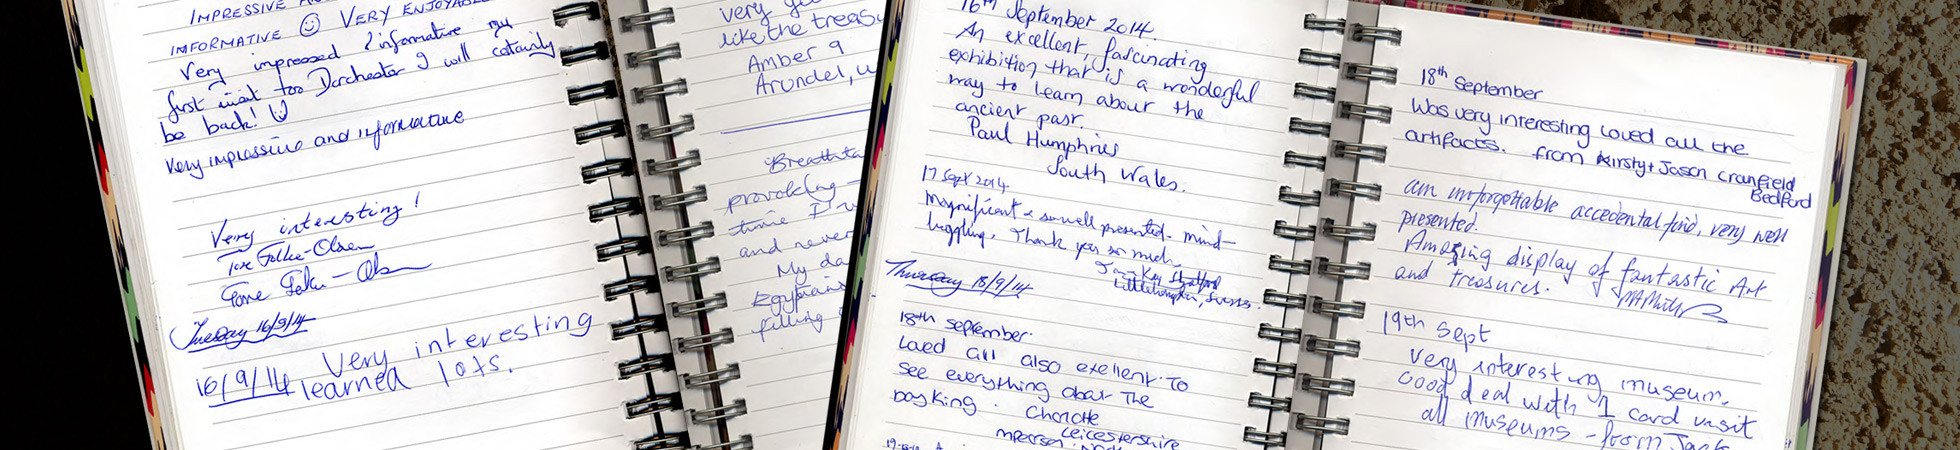 IMPRESSIVE
IMFORMATIVE ☺ VERY ENJOYABLE
Very impressed & informative my
first visit too Dorchester I will certainly
be back! ☺
Very impressive and informative
Very interesting!
Tuesday 16/9/14
16/9/14 Very interesting
learned lots.
very
like the treasu
Amber 9
Arundel, W
Breathta
provoking –
time I
and never
My da
Egyptians
filling
16th September 2014.
An excellent, fascinating
exhibition that is a wonderful
way to learn about the
ancient past.
Paul Humphries
South Wales.
17 Sept 2014
Magnificent & so well presented - mind-
boggling. Thank you so much.
Littlehampton, Sussex.
Thursday 18/9/14
18th September.
Loved all also exellent. To
see everything about The
boy King. Charlotte
Leicestershire
18th September
Was very interesting loved all the
artifacts. from Kirsty + Jason Cranfield
Bedford
an unforgettable accedental find, very well
presented.
Amazing display of fantastic Art
and treasures.
19th Sept
Very interesting museum.
Good deal with 1 card visit
all museums - from Jack